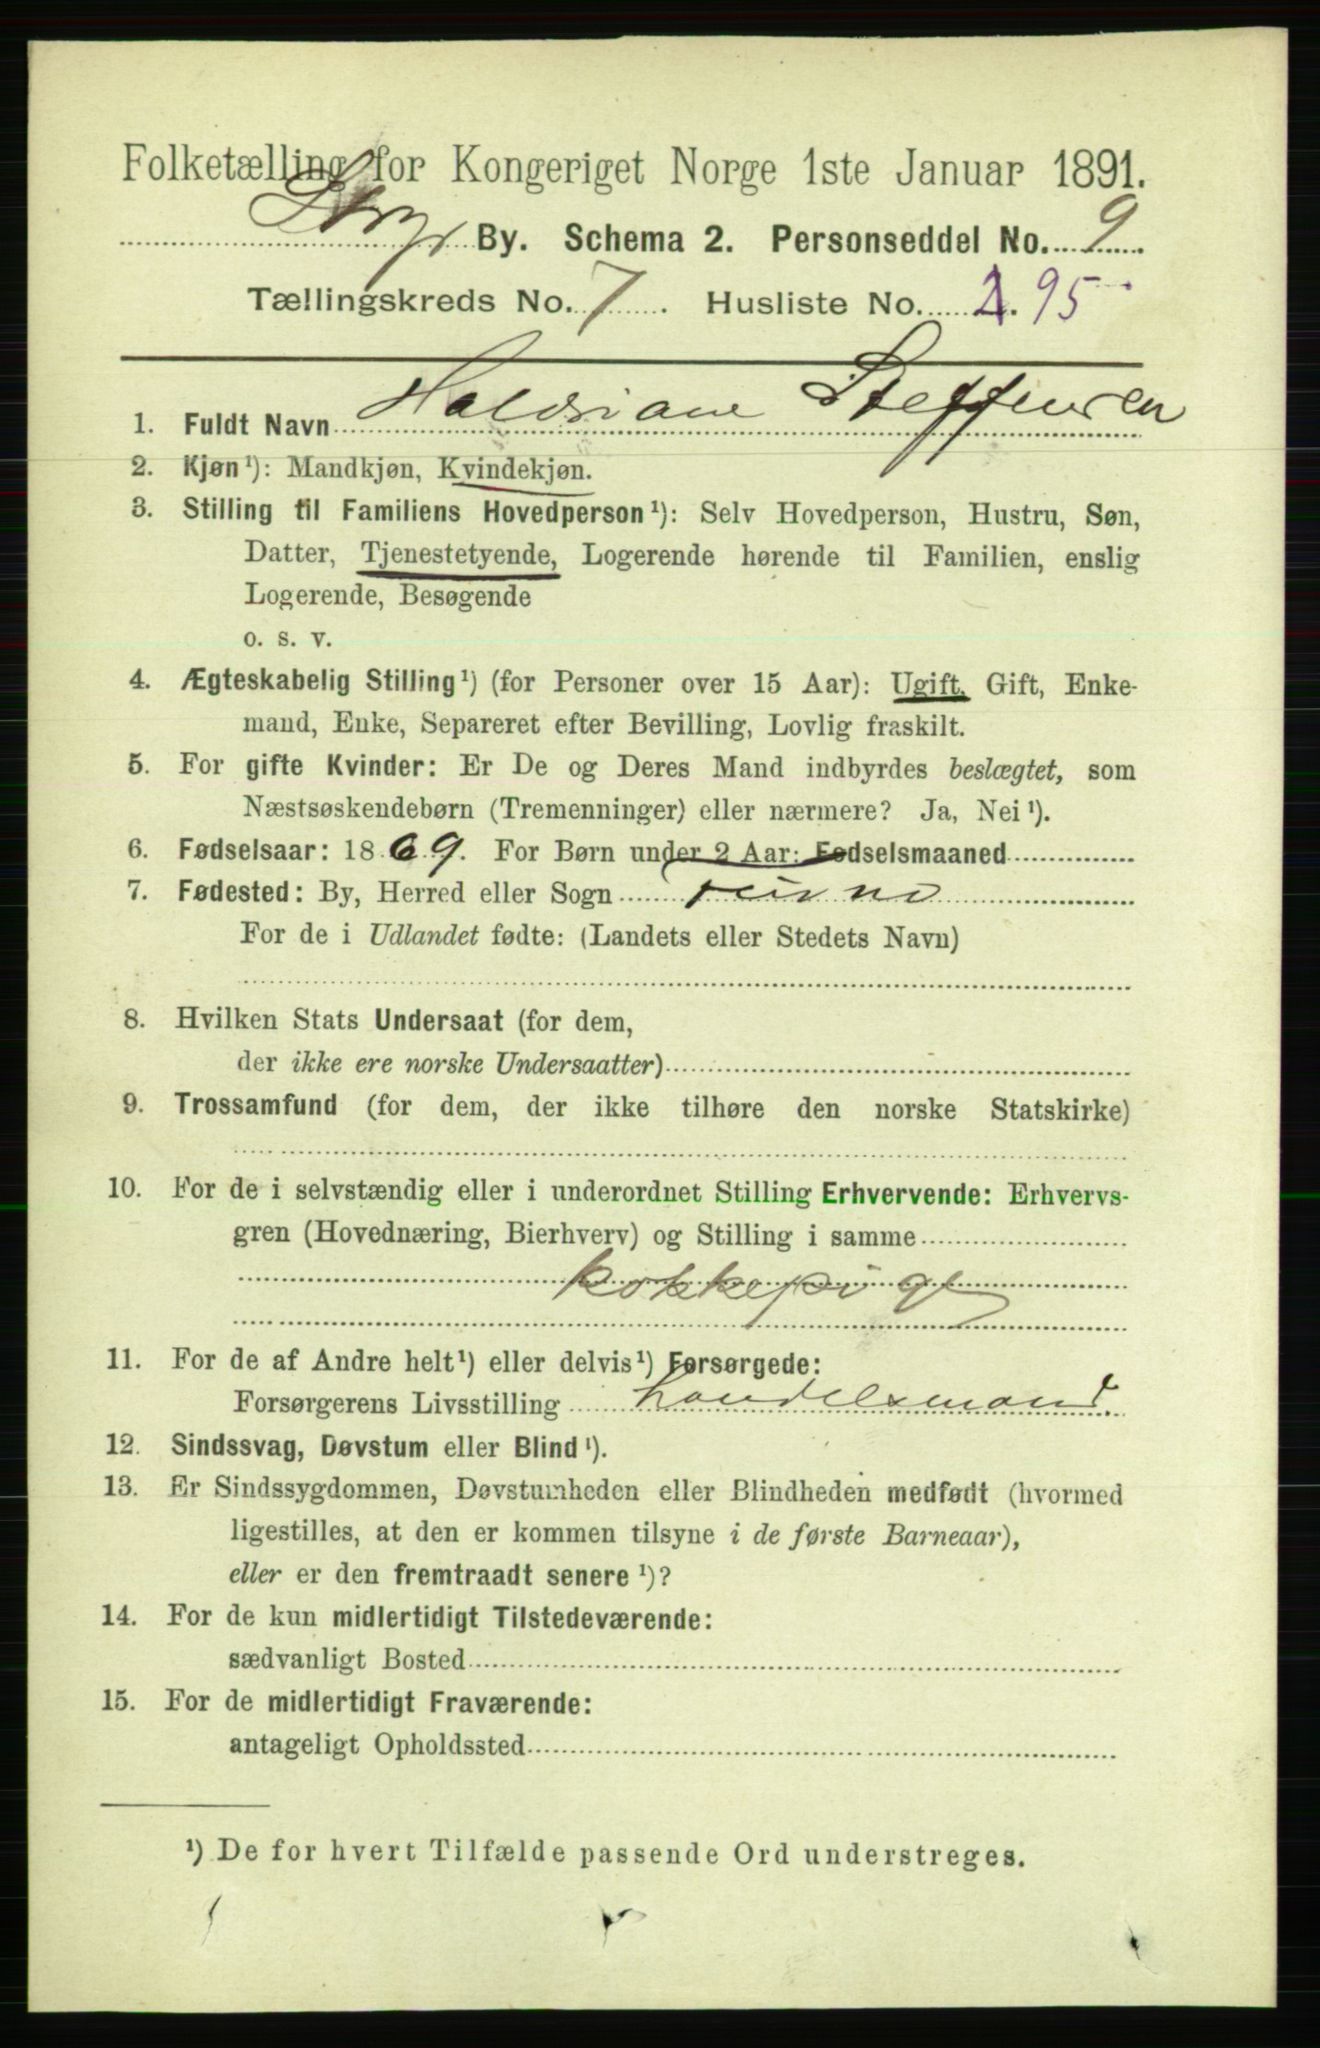 Folketælling for Kongeriget Norge 1ste Januar 1891.
By. Schema 2. Personseddel No. 9
Tællingskreds No. 7. Husliste No. 95
1. Fuldt Navn Haldriane Steffensen
2. Kjøn ¹): Mandkjøn, Kvindekjøn.
3. Stilling til Familiens Hovedperson ¹): Selv Hovedperson, Hustru, Søn,
Datter, Tjenestetyende, Logerende hørende til Familien, enslig
Logerende, Besøgende
o. s. v.
4. Ægteskabelig Stilling ¹) (for Personer over 15 Aar): Ugift, Gift, Enke-
mand, Enke, Separeret efter Bevilling, Lovlig fraskilt.
5. For gifte Kvinder: Er De og Deres Mand indbyrdes beslægtet, som
Næstsøskendebørn (Tremenninger) eller nærmere? Ja, Nei ¹).
6. Fødselsaar: 1869. For Børn under 2 Aar: Fødselsmaaned
7. Fødested: By, Herred eller Sogn
For de i Udlandet fødte: (Landets eller Stedets Navn)
8. Hvilken Stats Undersaat (for dem,
der ikke ere norske Undersaatter)
9. Trossamfund (for dem, der ikke tilhøre den norske Statskirke)
10. For de i selvstændig eller i underordnet Stilling Erhvervende: Erhvervs-
gren (Hovednæring, Bierhverv) og Stilling i samme
kokkepige
11. For de af Andre helt ¹) eller delvis ¹) Forsørgede:
Forsørgerens Livsstilling handelsmand.
12. Sindssvag, Døvstum eller Blind ¹).
13. Er Sindssygdommen, Døvstumheden eller Blindheden medfødt (hvormed
ligestilles, at den er kommen tilsyne i de første Barneaar),
eller er den fremtraadt senere ¹)?
14. For de kun midlertidigt Tilstedeværende:
sædvanligt Bosted
15. For de midlertidigt Fraværende:
antageligt Opholdssted
¹) De for hvert Tilfælde passende Ord understreges.